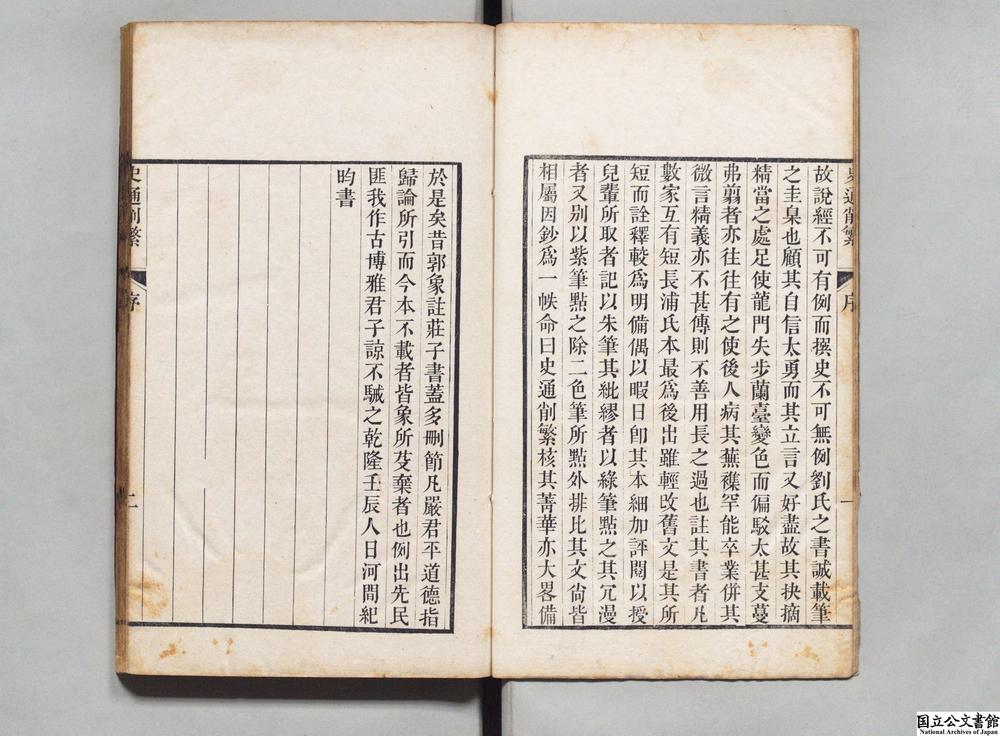 故說經不可有例而撰史不可無例劉氏之書誠載筆
之圭臬也顧其自信太勇而其立言又好盡故其抉摘
精當之處足使龍門失步蘭臺變色而偏駁太甚支蔓
弗翦者亦往往有之使後人病其蕪襍罕能卒業併其
微言精義亦不甚傳則不善用長之過也註其書者凡
數家互有短長浦氏本最爲後出雖輕改舊文是其所
短而詮釋較爲明備偶以暇日卽其本細加評閱以授
兒輩所取者記以朱筆其紕繆者以綠筆點之其冗漫
者又別以紫筆點之除二色筆所點外排比其文尙皆
相屬因鈔爲一帙命曰史通削繁核其菁華亦大畧備
史通削繁
序
一
於是矣昔郭象註莊子書蓋多刪節凡嚴君平道德指
歸論所引而今本不載者皆象所芟棄者也例出先民
匪我作古博雅君子諒不駴之乾隆壬辰人日河間紀
昀書
史通削繁
序
二
国立公文書館
National Archives of Japan